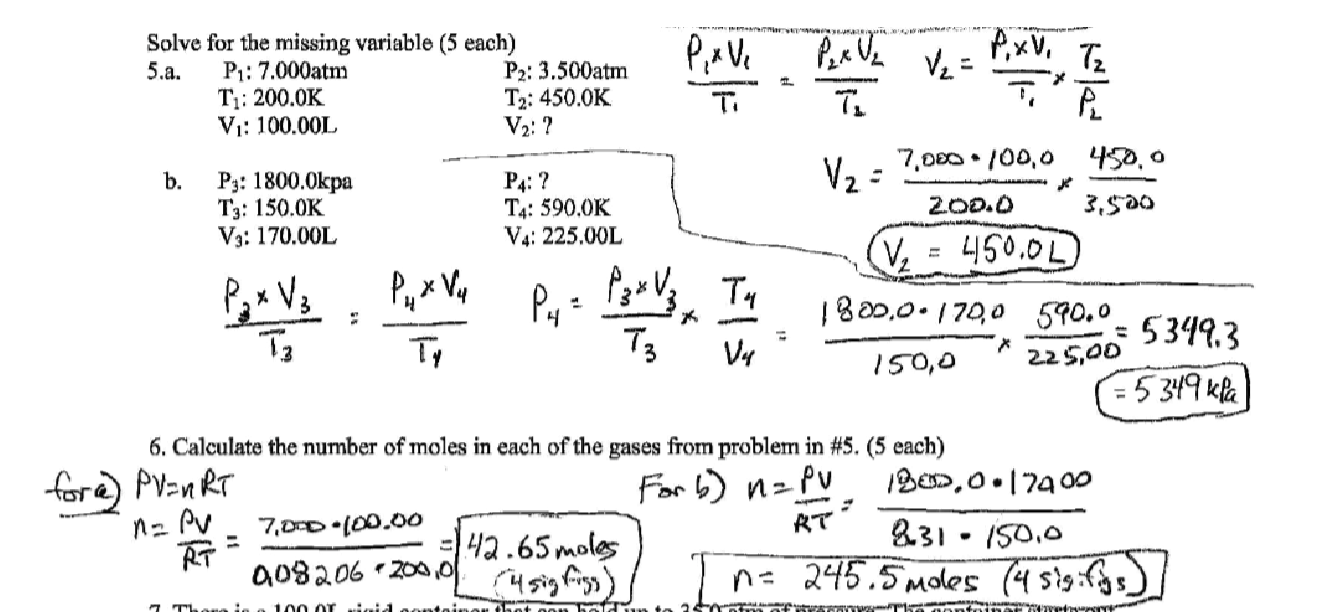 Solve for the missing variable (5 each)
5.a. P₁: 7.000atm P₂: 3.500atm
T₁: 200.0K T₂: 450.0K
V₁: 100.00L V₂: ?
P₁×V₁/T₁ = P₂×V₂/T₂ V₂ = P₁×V₁/T₁ × T₂/P₂
V₂ = 7.000 • 100.0/200.0 × 450.0/3.500
V₂ = 450.0L
b. P₃: 1800.0kpa P₄: ?
T₃: 150.0K T₄: 590.0K
V₃: 170.00L V₄: 225.00L
P₃×V₃/T₃ = P₄×V₄/T₄ P₄ = P₃×V₃/T₃ × T₄/V₄ = 1800.0 • 170.0/150.0 × 590.0/225.00 = 5349.3
= 5349 kPa
6. Calculate the number of moles in each of the gases from problem in #5. (5 each)
for a) PV=nRT
n = PV/RT = 7.000 • 100.00/0.08206 • 200.0 = 42.65 moles
(4 sig figs)
For b) n = PV/RT = 1800.0 • 170.00/8.31 • 150.0
n = 245.5 moles (4 sig figs)